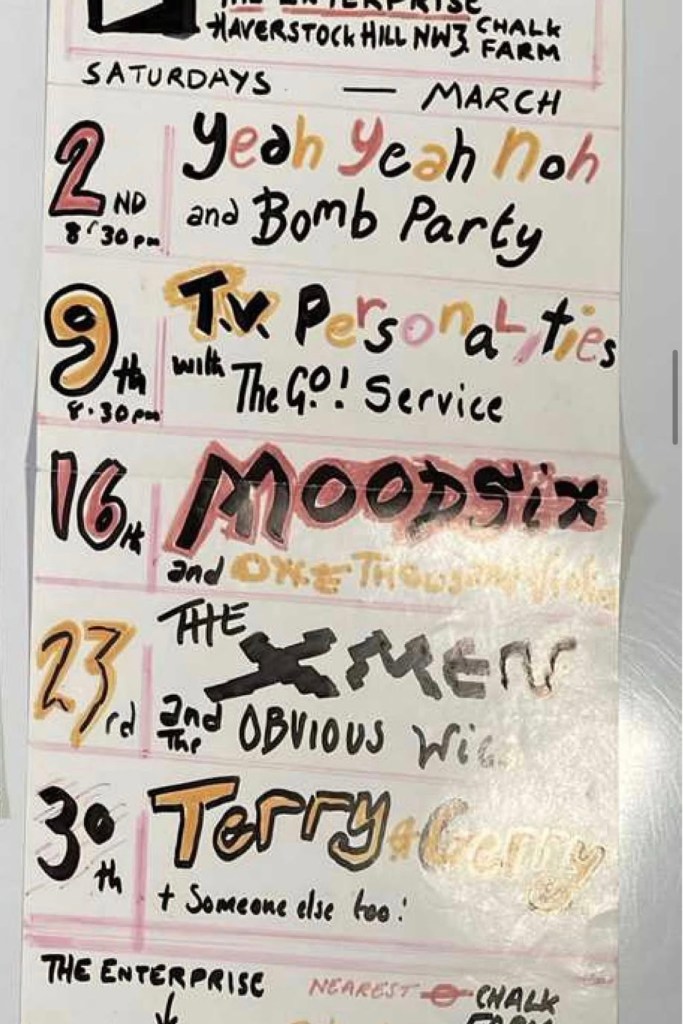 THE ENTERPRISE
HAVERSTOCK HILL NW3 CHALK FARM
SATURDAYS — MARCH
2ND Yeah Yeah Noh
8·30pm and Bomb Party
9th T.V. PersonaLities
8·30pm with The GO! Service
16th MOODSix
and ONE Thousand Violins
23rd THE XMEN
and The OBVIOUS
30th Terry & Gerry
+ Someone else too!
THE ENTERPRISE NEAREST CHALK FARM